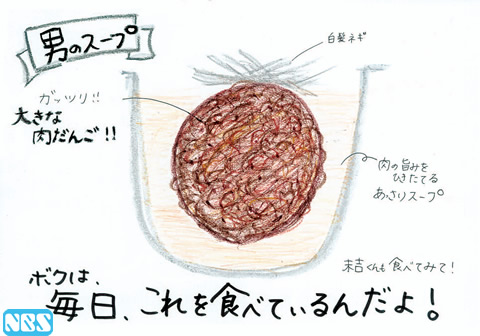 男のスープ
白髪ネギ
ガッツリ!!
大きな
肉だんご!!
肉の旨みを
ひきたてる
あっさりスープ
末吉くんも食べてみて!
ボクは、
毎日、これを食べているんだよ!
NBS